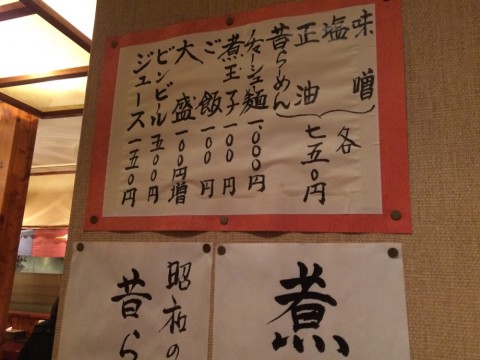 味噌
塩
正油
昔らーめん
各七五〇円
チャーシュー麺 一、〇〇〇円
煮玉子 一〇〇円
ご飯 一〇〇円
大盛 一〇〇円増
ビンビール 五〇〇円
ジュース 一五〇円
煮
昭和の
昔ら